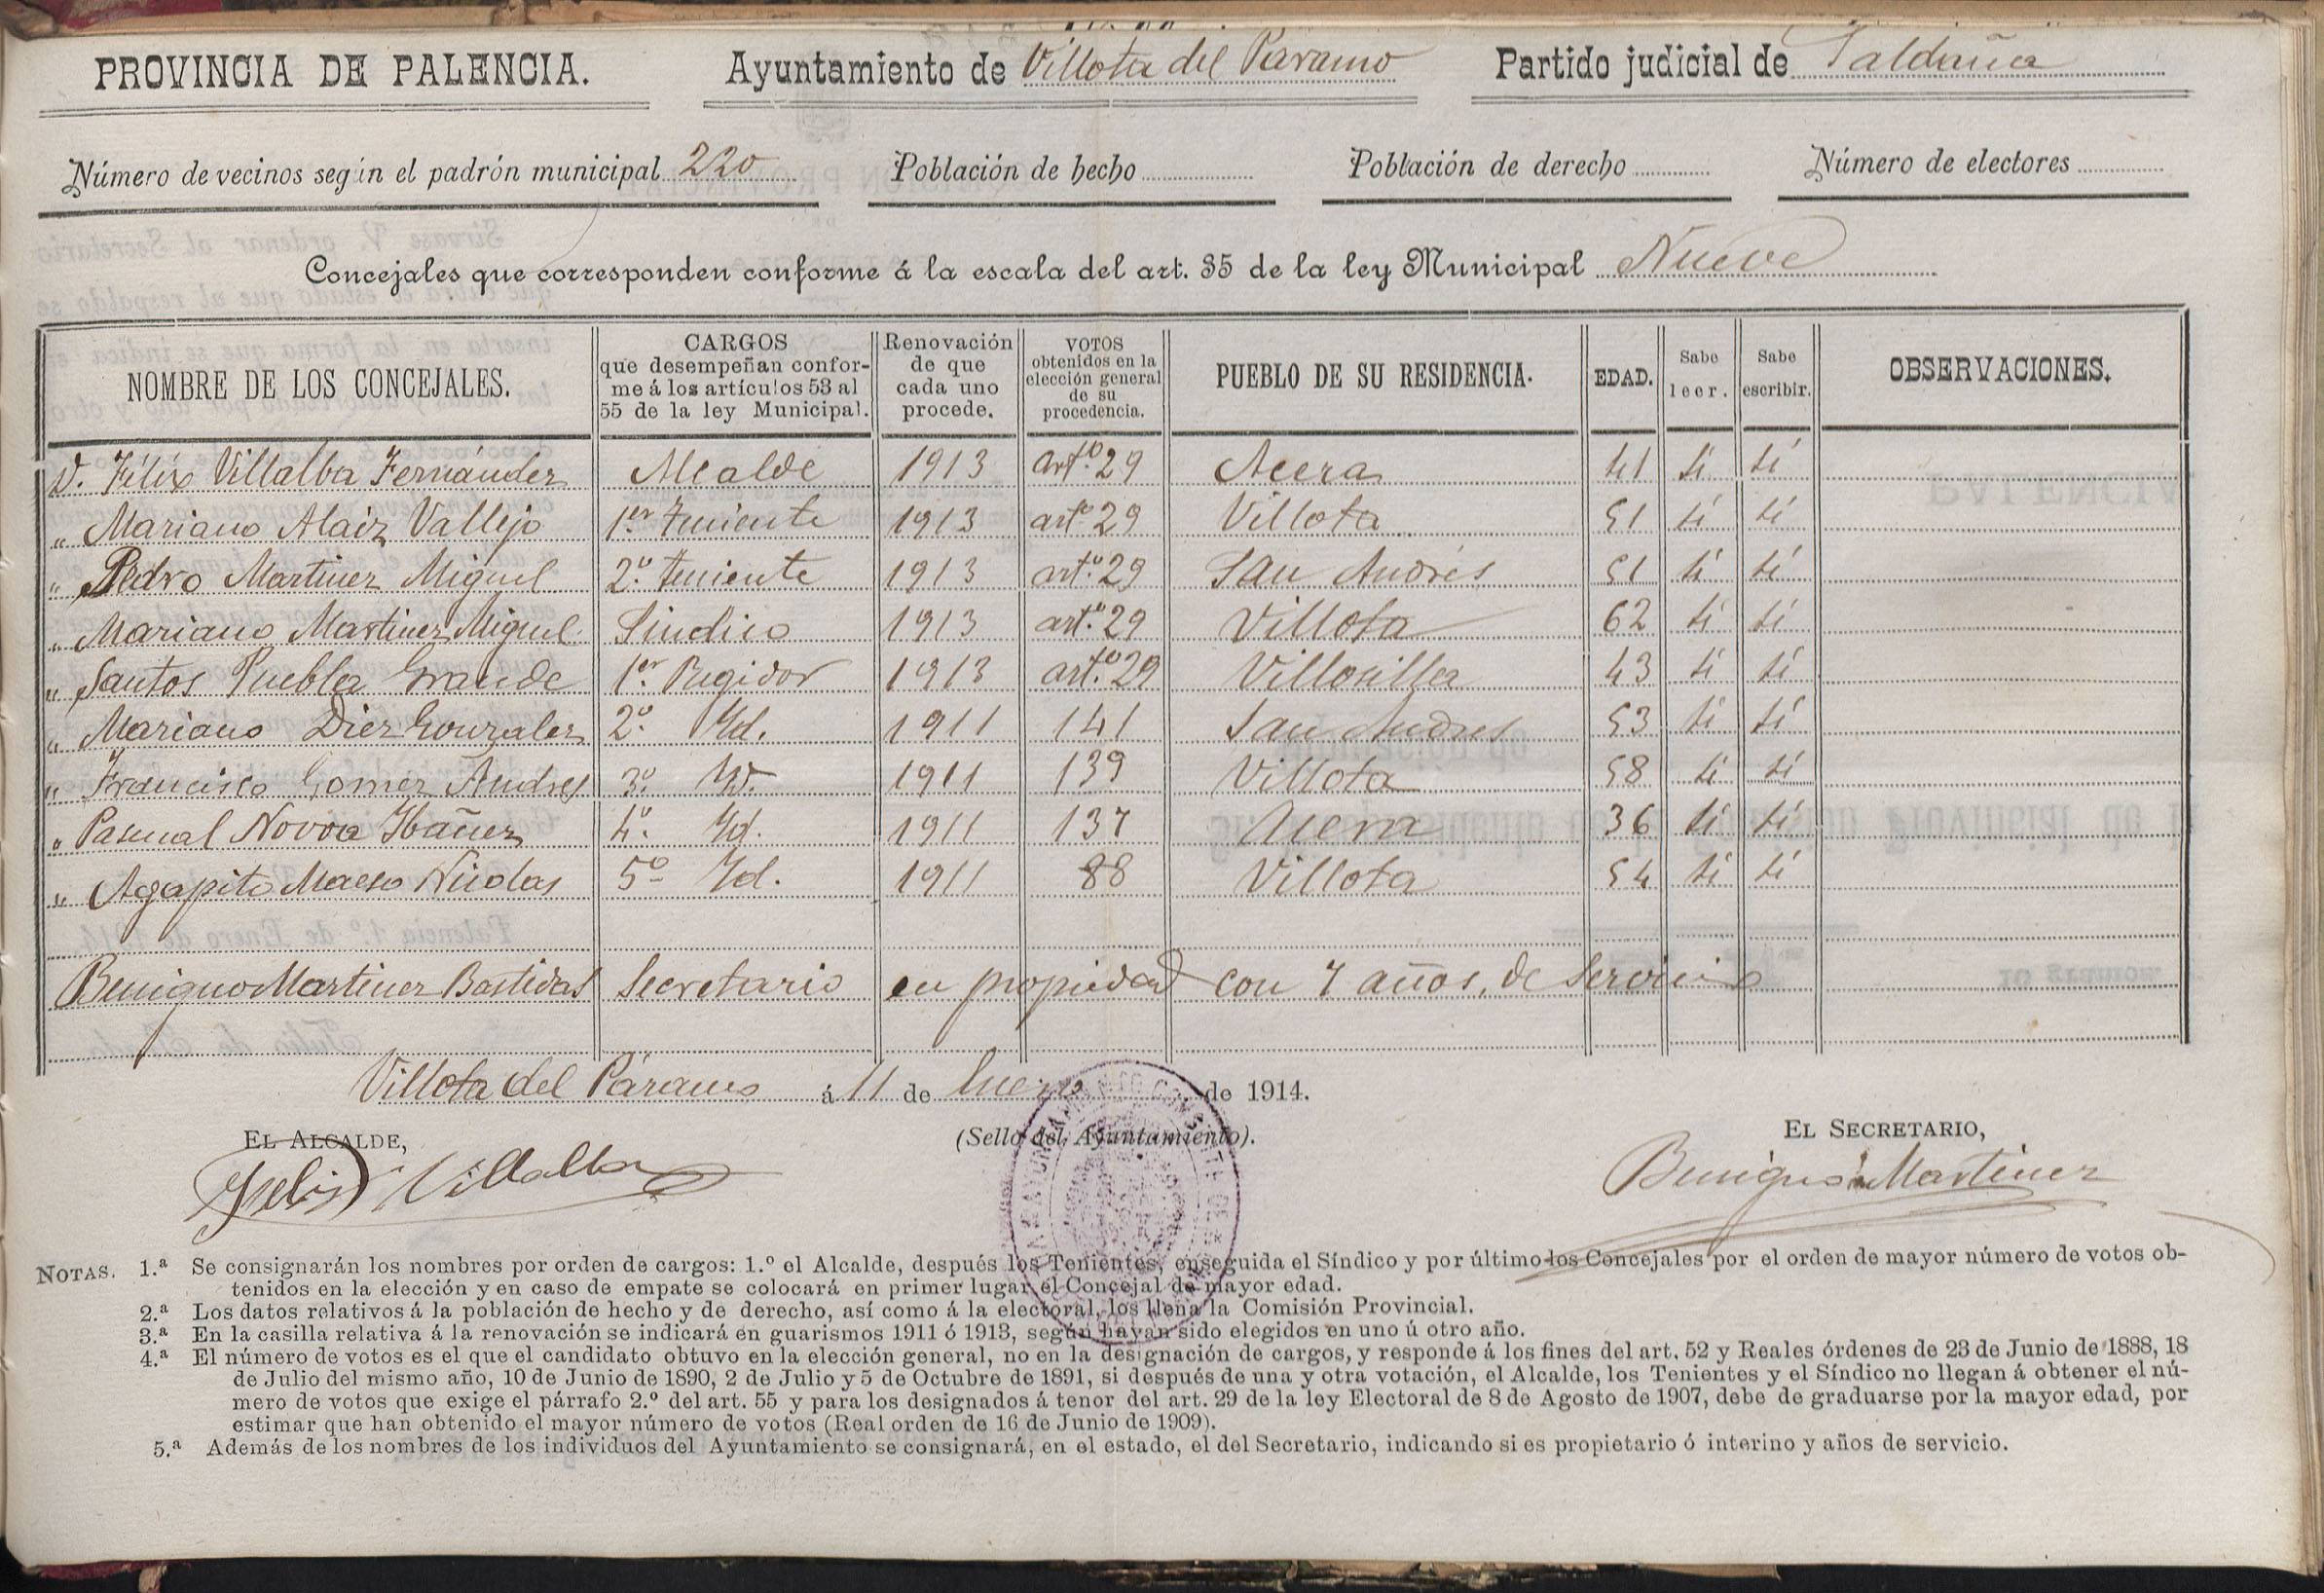 PROVINCIA DE PALENCIA. Ayuntamiento de Villota del Paramo Partido judicial de Saldaña
Número de vecinos según el padrón municipal 220 Población de hecho Población de derecho Número de electores
Concejales que corresponden conforme á la escala del art. 35 de la ley Municipal Nueve
NOMBRE DE LOS CONCEJALES. CARGOS que desempeñan confor-me á los artículos 53 al 55 de la ley Municipal. Renovación de que cada uno procede. VOTOS obtenidos en la elección general de su procedencia. PUEBLO DE SU RESIDENCIA. EDAD. Sabe leer. Sabe escribir. OBSERVACIONES.
D. Félix Villalba Fernández Alcalde 1913 artº. 29 Acera 41 si sí
" Mariano Alaiz Vallejo 1er Teniente 1913 artº 29 Villota 51 sí sí
" Pedro Martinez Miguel 2º. Teniente 1913 artº. 29 San Andrés 51 sí sí
" Mariano Martinez Miguel Sindico 1913 artº. 29 Villota 62 sí sí
" Santos Puebla Grande 1er. Regidor 1913 artº. 29 Villosilla 43 sí sí
" Mariano Diez Gonzalez 2º. Id. 1911 141 San Andres 53 sí sí
" Francisco Gomez Andres 3º. Id. 1911 139 Villota 58 sí sí
" Pascual Novoa Ibañez 4º. Id. 1911 137 Acera 36 sí sí
" Agapito Maeso Nicolas 5º Id. 1911 88 Villota 54 sí sí
Benigno Martinez Bastidas Secretario en propiedad con 7 años, de Servicio
Villota del Páramo á 11 de Enero de 1914.
EL ALCALDE, (Sello del Ayuntamiento). EL SECRETARIO,
Felix Villalba Benigno Martinez
NOTAS. 1.ª Se consignarán los nombres por orden de cargos: 1.º el Alcalde, después los Tenientes, enseguida el Síndico y por último los Concejales por el orden de mayor número de votos ob-
tenidos en la elección y en caso de empate se colocará en primer lugar el Concejal de mayor edad.
2.ª Los datos relativos á la población de hecho y de derecho, así como á la electoral, los llena la Comisión Provincial.
3.ª En la casilla relativa á la renovación se indicará en guarismos 1911 ó 1913, según hayan sido elegidos en uno ú otro año.
4.ª El número de votos es el que el candidato obtuvo en la elección general, no en la designación de cargos, y responde á los fines del art. 52 y Reales órdenes de 23 de Junio de 1888, 18
de Julio del mismo año, 10 de Junio de 1890, 2 de Julio y 5 de Octubre de 1891, si después de una y otra votación, el Alcalde, los Tenientes y el Síndico no llegan á obtener el nú-
mero de votos que exige el párrafo 2.º del art. 55 y para los designados á tenor del art. 29 de la ley Electoral de 8 de Agosto de 1907, debe de graduarse por la mayor edad, por
estimar que han obtenido el mayor número de votos (Real orden de 16 de Junio de 1909).
5.ª Además de los nombres de los individuos del Ayuntamiento se consignará, en el estado, el del Secretario, indicando si es propietario ó interino y años de servicio.